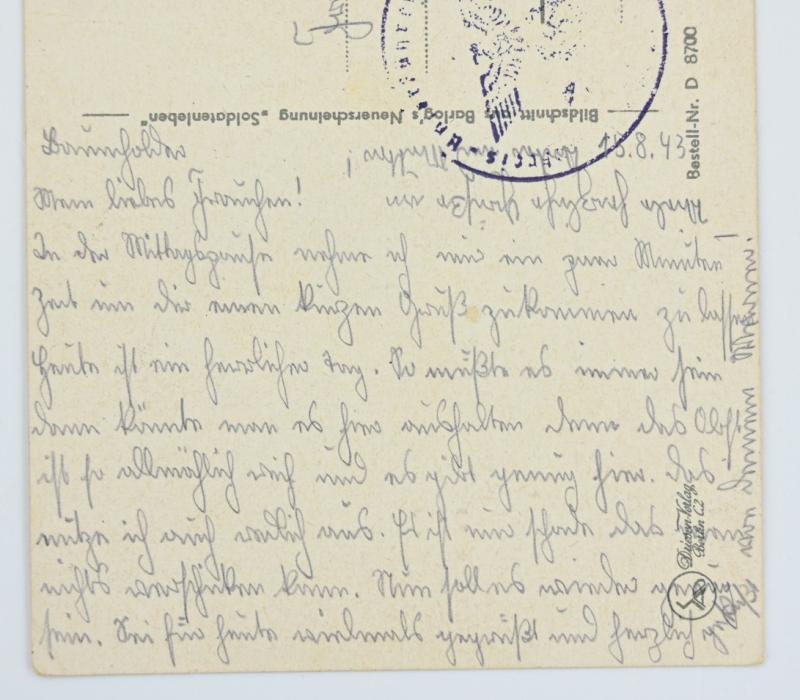 Bestell-Nr. D 8700
Bildschnitt aus Barlog's Neuerscheinung „Soldatenleben"
Baumholder 15.8.43
Mein liebes Frauchen!
In der Mittagspause nehme ich mir ein paar Minuten
Zeit um dir einen kurzen Gruß zukommen zu lassen.
Heute ist ein herrlicher Tag. So müßte es immer sein
dann könnte man es hier aushalten denn das Obst
ist so allmählich reif und es gibt genug hier. Das
nutze ich auch redlich aus. Es ist nur schade das man
nichts verschicken kann. Nun soll es wieder genug
sein. Sei für heute vielmals gegrüßt und herzlich
geküßt von deinem
Viele herzliche Grüße an
Verlag
Berlin C2